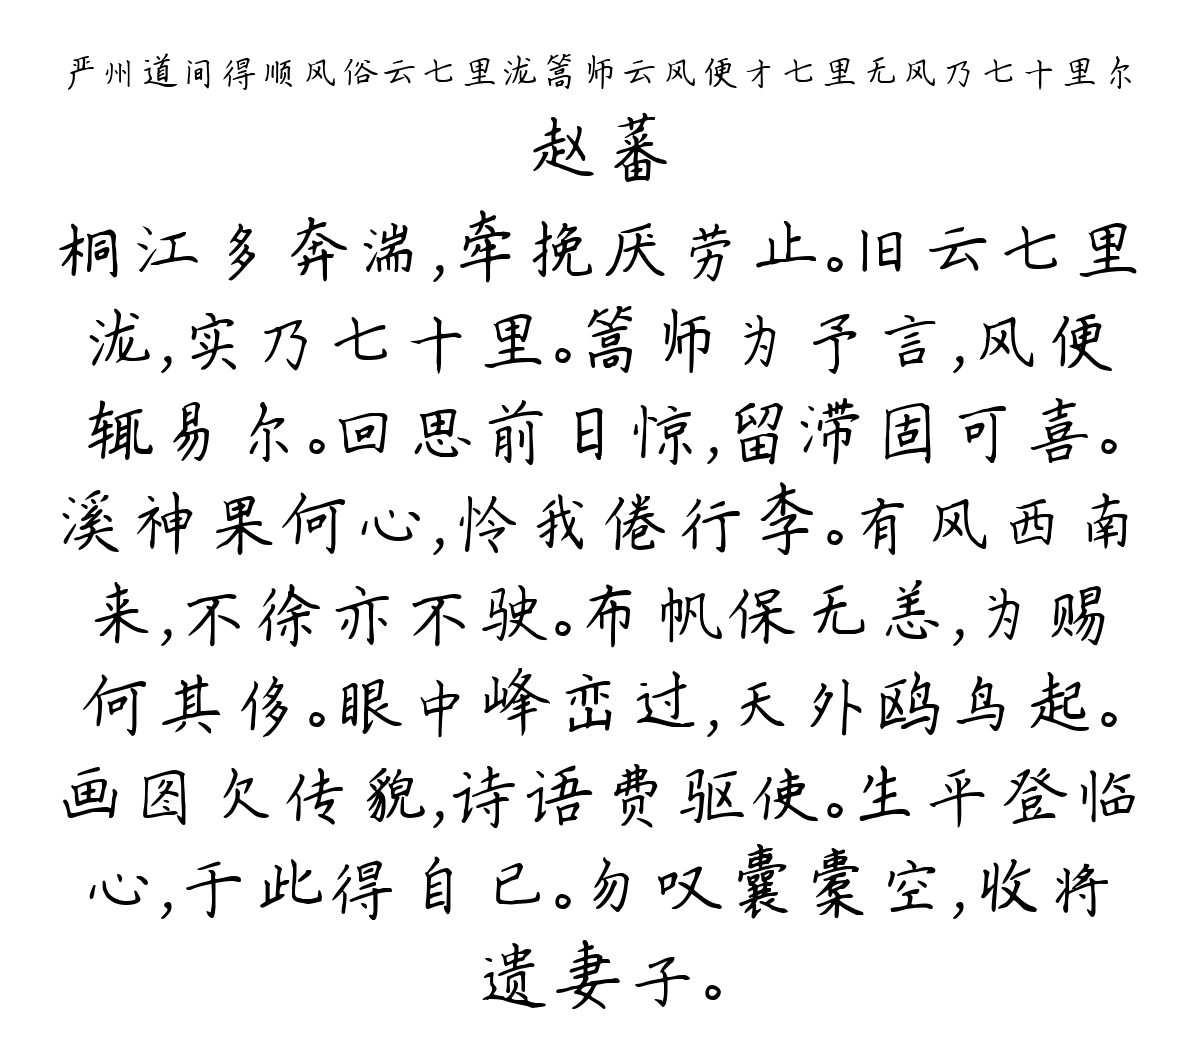 严州道间得顺风俗云七里泷篙师云风便才七里无风乃七十里尔
赵蕃
桐江多奔湍,牵挽厌劳止。旧云七里
泷,实乃七十里。篙师为予言,风便
辄易尔。回思前日惊,留滞固可喜。
溪神果何心,怜我倦行李。有风西南
来,不徐亦不驶。布帆保无恙,为赐
何其侈。眼中峰峦过,天外鸥鸟起。
画图欠传貌,诗语费驱使。生平登临
心,于此得自已。勿叹囊橐空,收将
遗妻子。